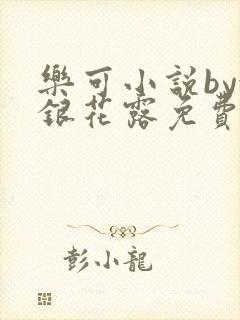 樂可小說by
銀花露免費
彭小龍